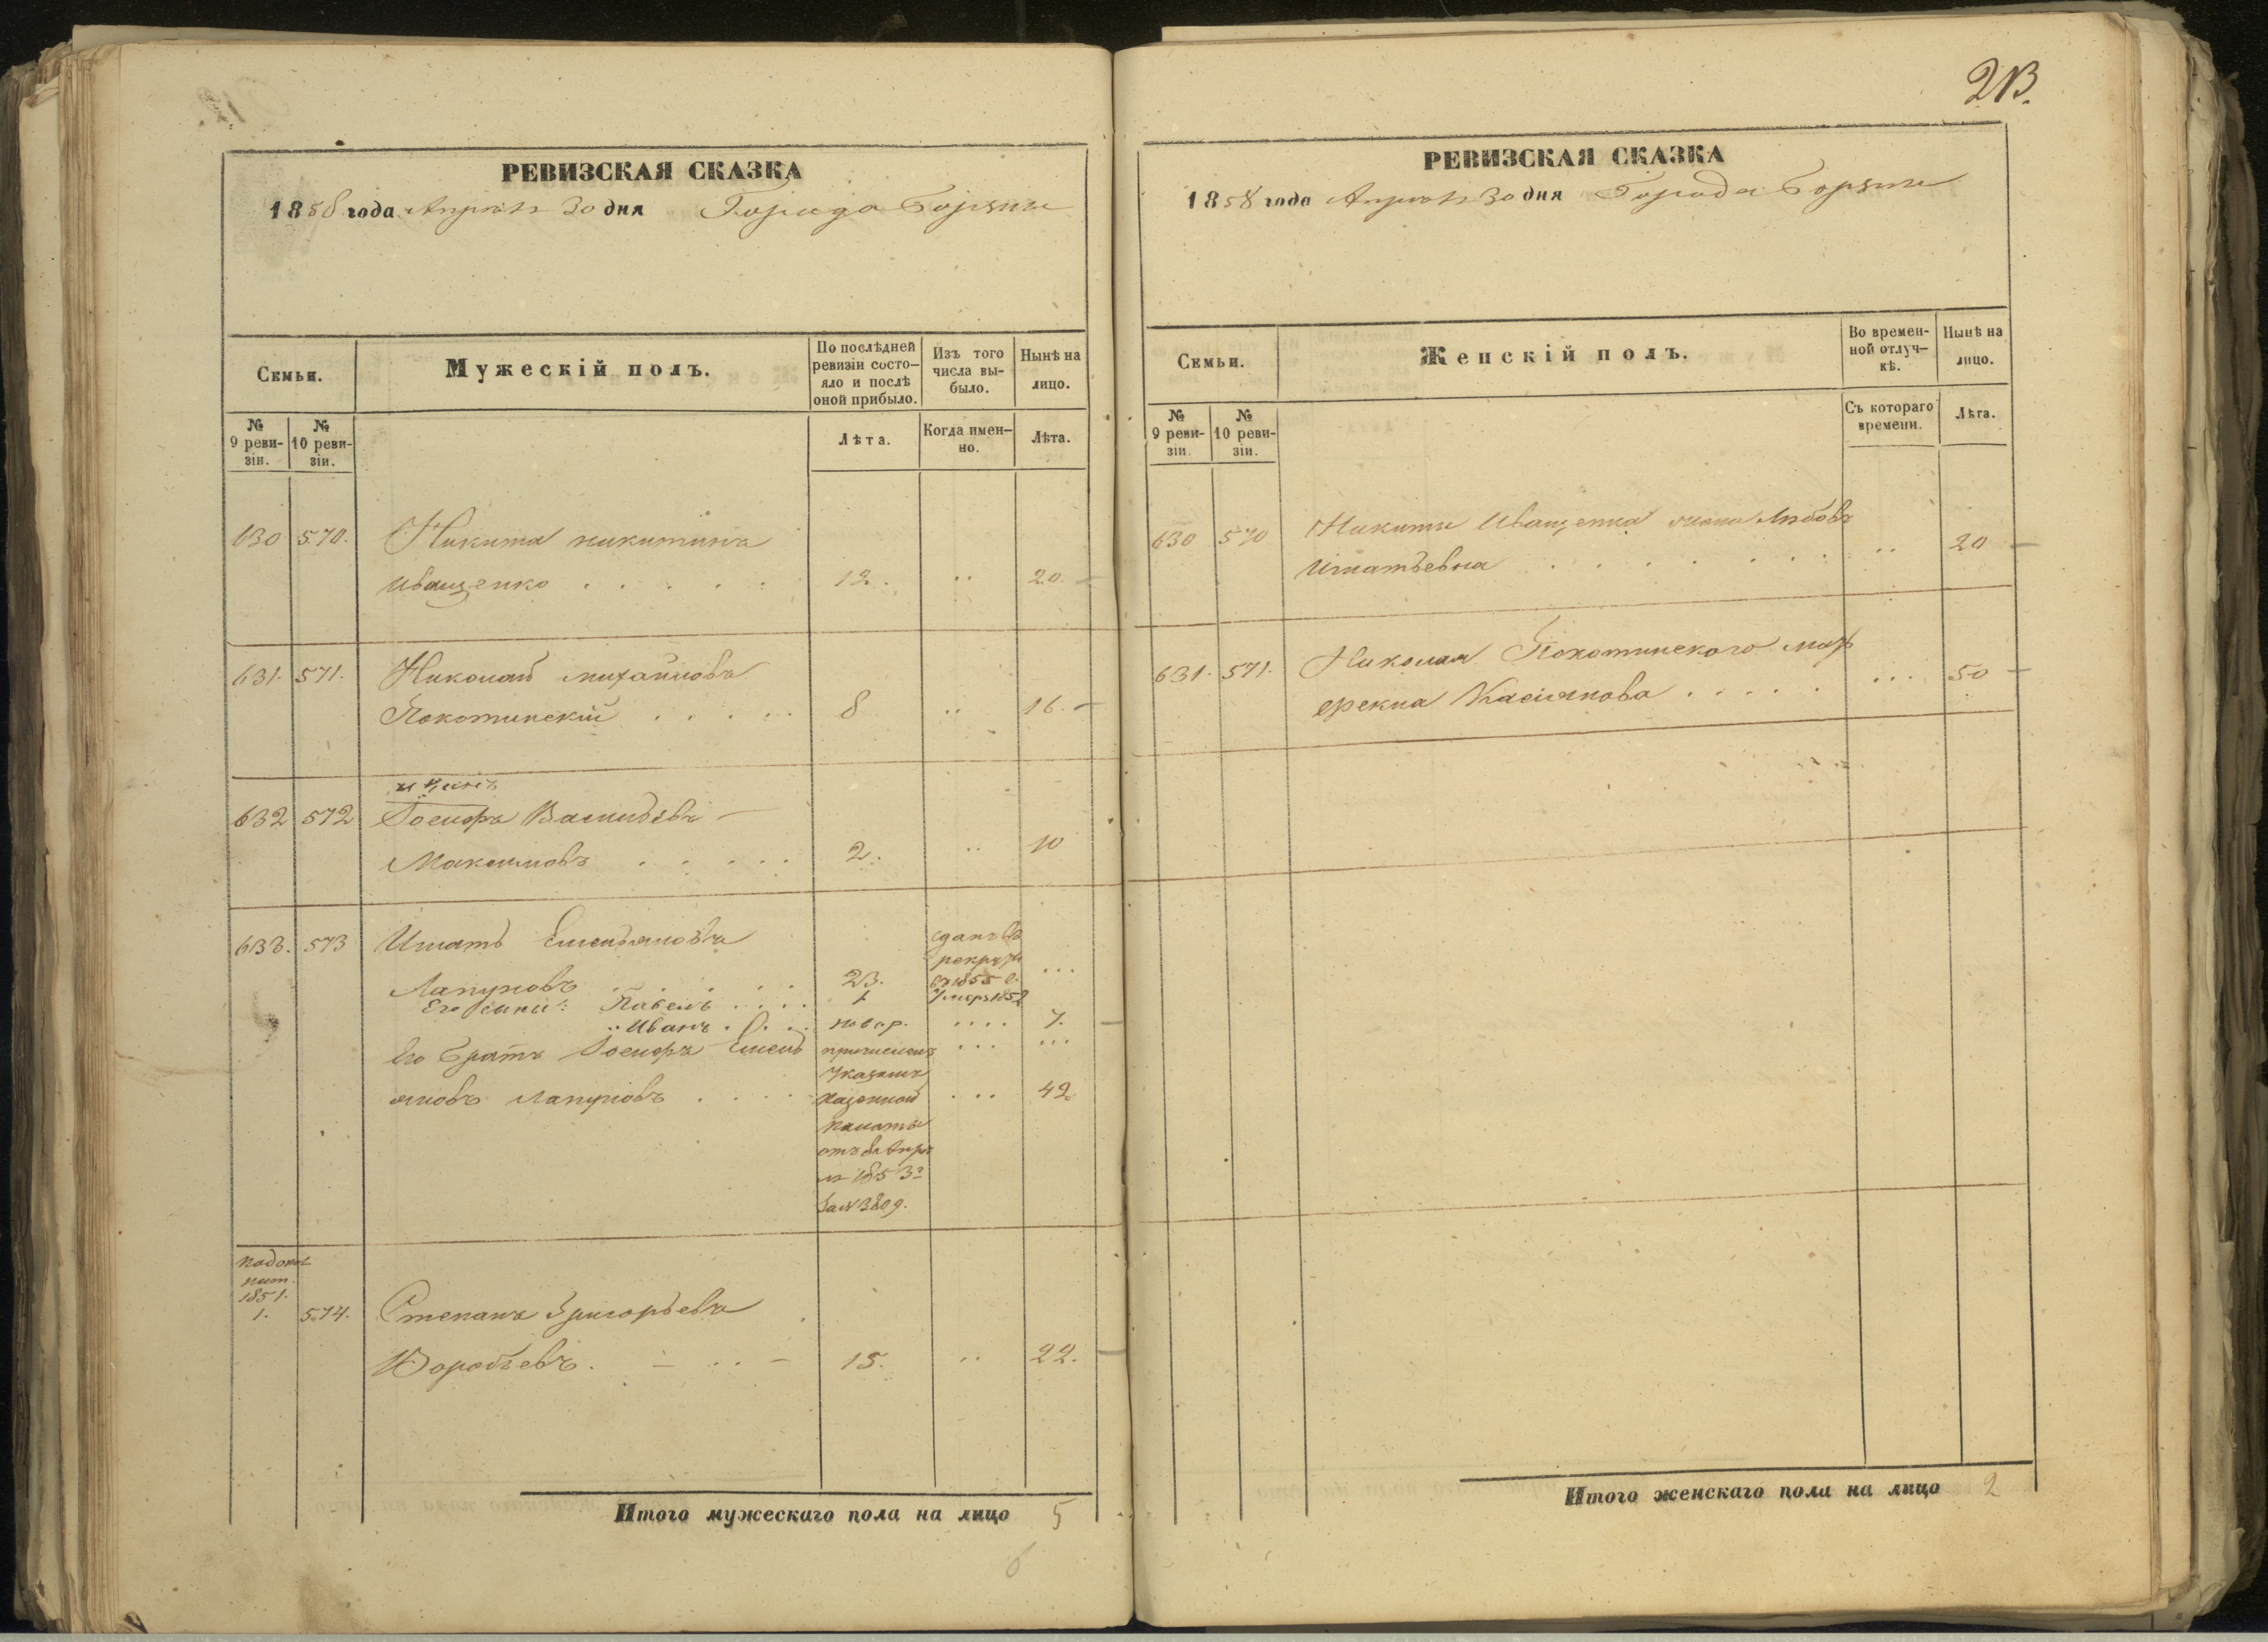 РЕВИЗСКАЯ СКАЗКА
1858 года Апреля 30 дня Города Борзны
Семьи.
Мужескій полъ.
По послѣдней ревизіи состо-
яло и послѣ
оной прибыло.
Изъ того
числа вы-
было.
Нынѣ на
лицо.
№
9 реви-
зіи.
№
10 реви-
зіи.
Лѣта.
Когда имен-
но.
Лѣта.
630 570. Никита никитинъ
Иващенко . . . . . 12. .. 20.
631. 571. Николай михайловъ
Покотинскій . . . . . 8 .. 16.
632 572 Іосифъ Васильевъ —
Максимовъ . . . . . 2. .. 10
633. 573 Игнатъ Емельяновъ
Лапуновъ . . . . . 23. ...
сданъ въ
рекруты
въ 1855 г.
Его сыны: Павелъ . . . . 1 Умеръ 185
" Иванъ . . . новор. .... 7.
Его братъ Іосифъ Емель
яновъ Лапуновъ . . . . 42
причисленъ
Указомъ
казенной
палаты
1853
за № 3809.
1851.
1. 574. Степанъ Григорьевъ
Воробьевъ. — .. — 15. .. 22.
Итого мужескаго пола на лицо 5
6
213.
РЕВИЗСКАЯ СКАЗКА
1858 года Апреля 30 дня Города Борзны
Семьи.
Женскій полъ.
Во времен-
ной отлуч-
кѣ.
Нынѣ на
лицо.
№
9 реви-
зіи.
№
10 реви-
зіи.
Съ котораго
времени.
Лѣта.
630 570 Никиты Иващенка жена Любовь
Игнатьевна . . . . . . .. 20
631. 571. Николая Покотинского мат
Касіянова . . . . . ... 50
Итого женскаго пола на лицо 2